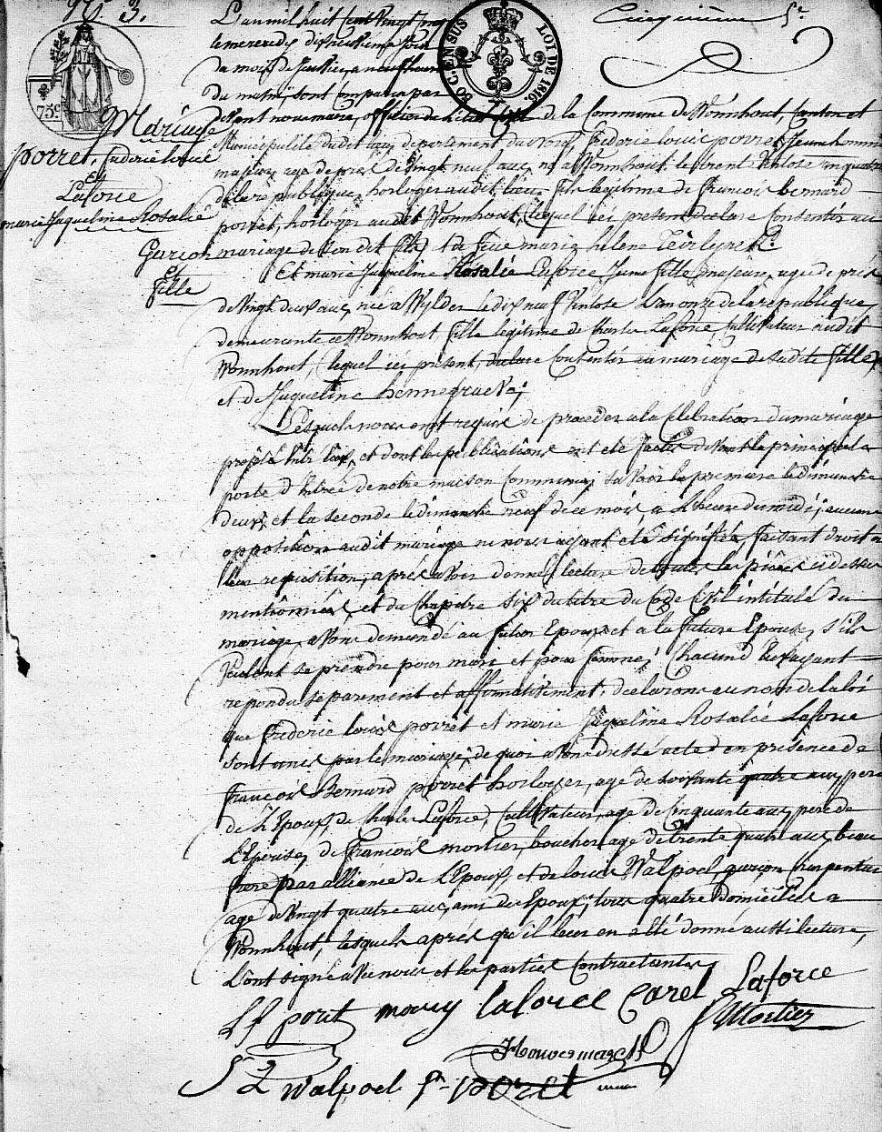 N. 3.
Cinquième f.
L'an mil huit cent vingt cinq
le mercredi dix neuvième jour
du mois de Janvier, a neuf heures
du matin, sont comparus par
devant nous maire, officier de l'état civil de la Commune de Wormhout, Canton et
Municipalité dudit lieu, departement du nord, frederic louis porret, Jeune homme
majeur, age de près de vingt neuf ans, né a Wormhout le trente Ventose an quatre
de la république, horloger audit lieu, fils legitime de francois bernard
porret, horloger audit Wormhout, lequel ici present declare Consentir au
mariage de son dit fils, & de feue marie helene
Et marie Jaqueline Rosalie Laforce Jeune fille majeure, agée de près
de vingt deux ans, née a Wylder le dix neuf Ventose L'an onze de la république,
demeurante a Wormhout fille legitime de Charles Laforce Cultivateur audit
Wormhout, lequel ici présent, declare Consentir au mariage de sadite fille,
et de Jaqueline
Lesquels nous ont requis de proceder a la Celebration du mariage
projeté entr'eux, et dont les publications ont été faites devant la principale
porte d'Entrée de notre maison Commune; savoir la premiere le dimanche
deux, et la seconde le dimanche neuf de ce mois, a L'heure du midi; aucune
opposition audit mariage ne nous ayant été signifiée, faisant droit a
leur requisition, après avoir donné lecture de toutes les pièces ci dessus
mentionnées et du Chapitre six du titre du Code Civil intitulé du
mariage, avons demandé au futur Epoux et a la future Epouse, s'ils
veulent se prendre pour mari et pour femme; Chacun d'eux ayant
repondu separement et affirmativement, declarons au nom de la loi
que frederic louis porret et marie Jaqueline Rosalie Laforce
sont unis par le mariage; de quoi avons dressé acte en présence de
francois Bernard porret horloger, age de soixante quatre ans, pere
de L'Epoux, de Charles Laforce, Cultivateur, age de Cinquante ans, pere de
L'Epouse, de francois mortier, boucher, age de trente quatre ans, beau
frere par alliance de L'Epoux, et de louis Walpoel, garçon charpentier
age de vingt quatre ans, ami des Epoux; tous quatre domiciliés a
Wormhout, lesquels après qu'il leur en a été donné aussi lecture,
L'ont signé avec nous et les parties Contractantes
Mariage
porret, frederic louis
et
Laforce
marie Jaqueline Rosalie
Garcon
et
fille
75c
80 C. EN SUS
LOI DE 1816.
Laforce
Laforce
Mortier
Walpoel